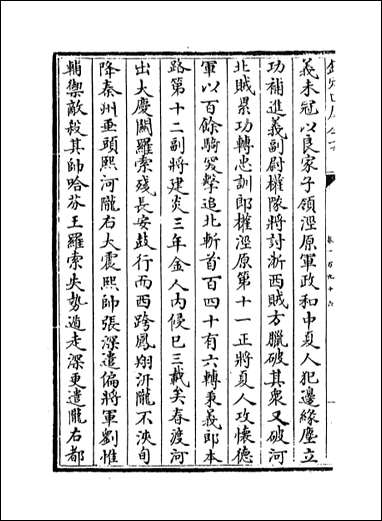 義未冠以良家子領涇原軍政和中夏人犯邊緣塵立
功補進義副尉權隊將討浙西賊方臘破其衆又破河
北賊累功轉忠訓郎權涇原第十一正將夏人攻懷德
軍以百餘騎突擊追北斬首百四十有六轉秉義郎本
路第十二副將建炎三年金人内侵已三載矣春渡河
出大慶關羅索殘長安鼓行而西跨鳳翔汧隴不浹旬
降秦州垂頭熙河隴右大震熙帥張深遣偏將軍劉惟
輔禦敵殺其帥哈芬王羅索失勢遁走深更遣隴右都